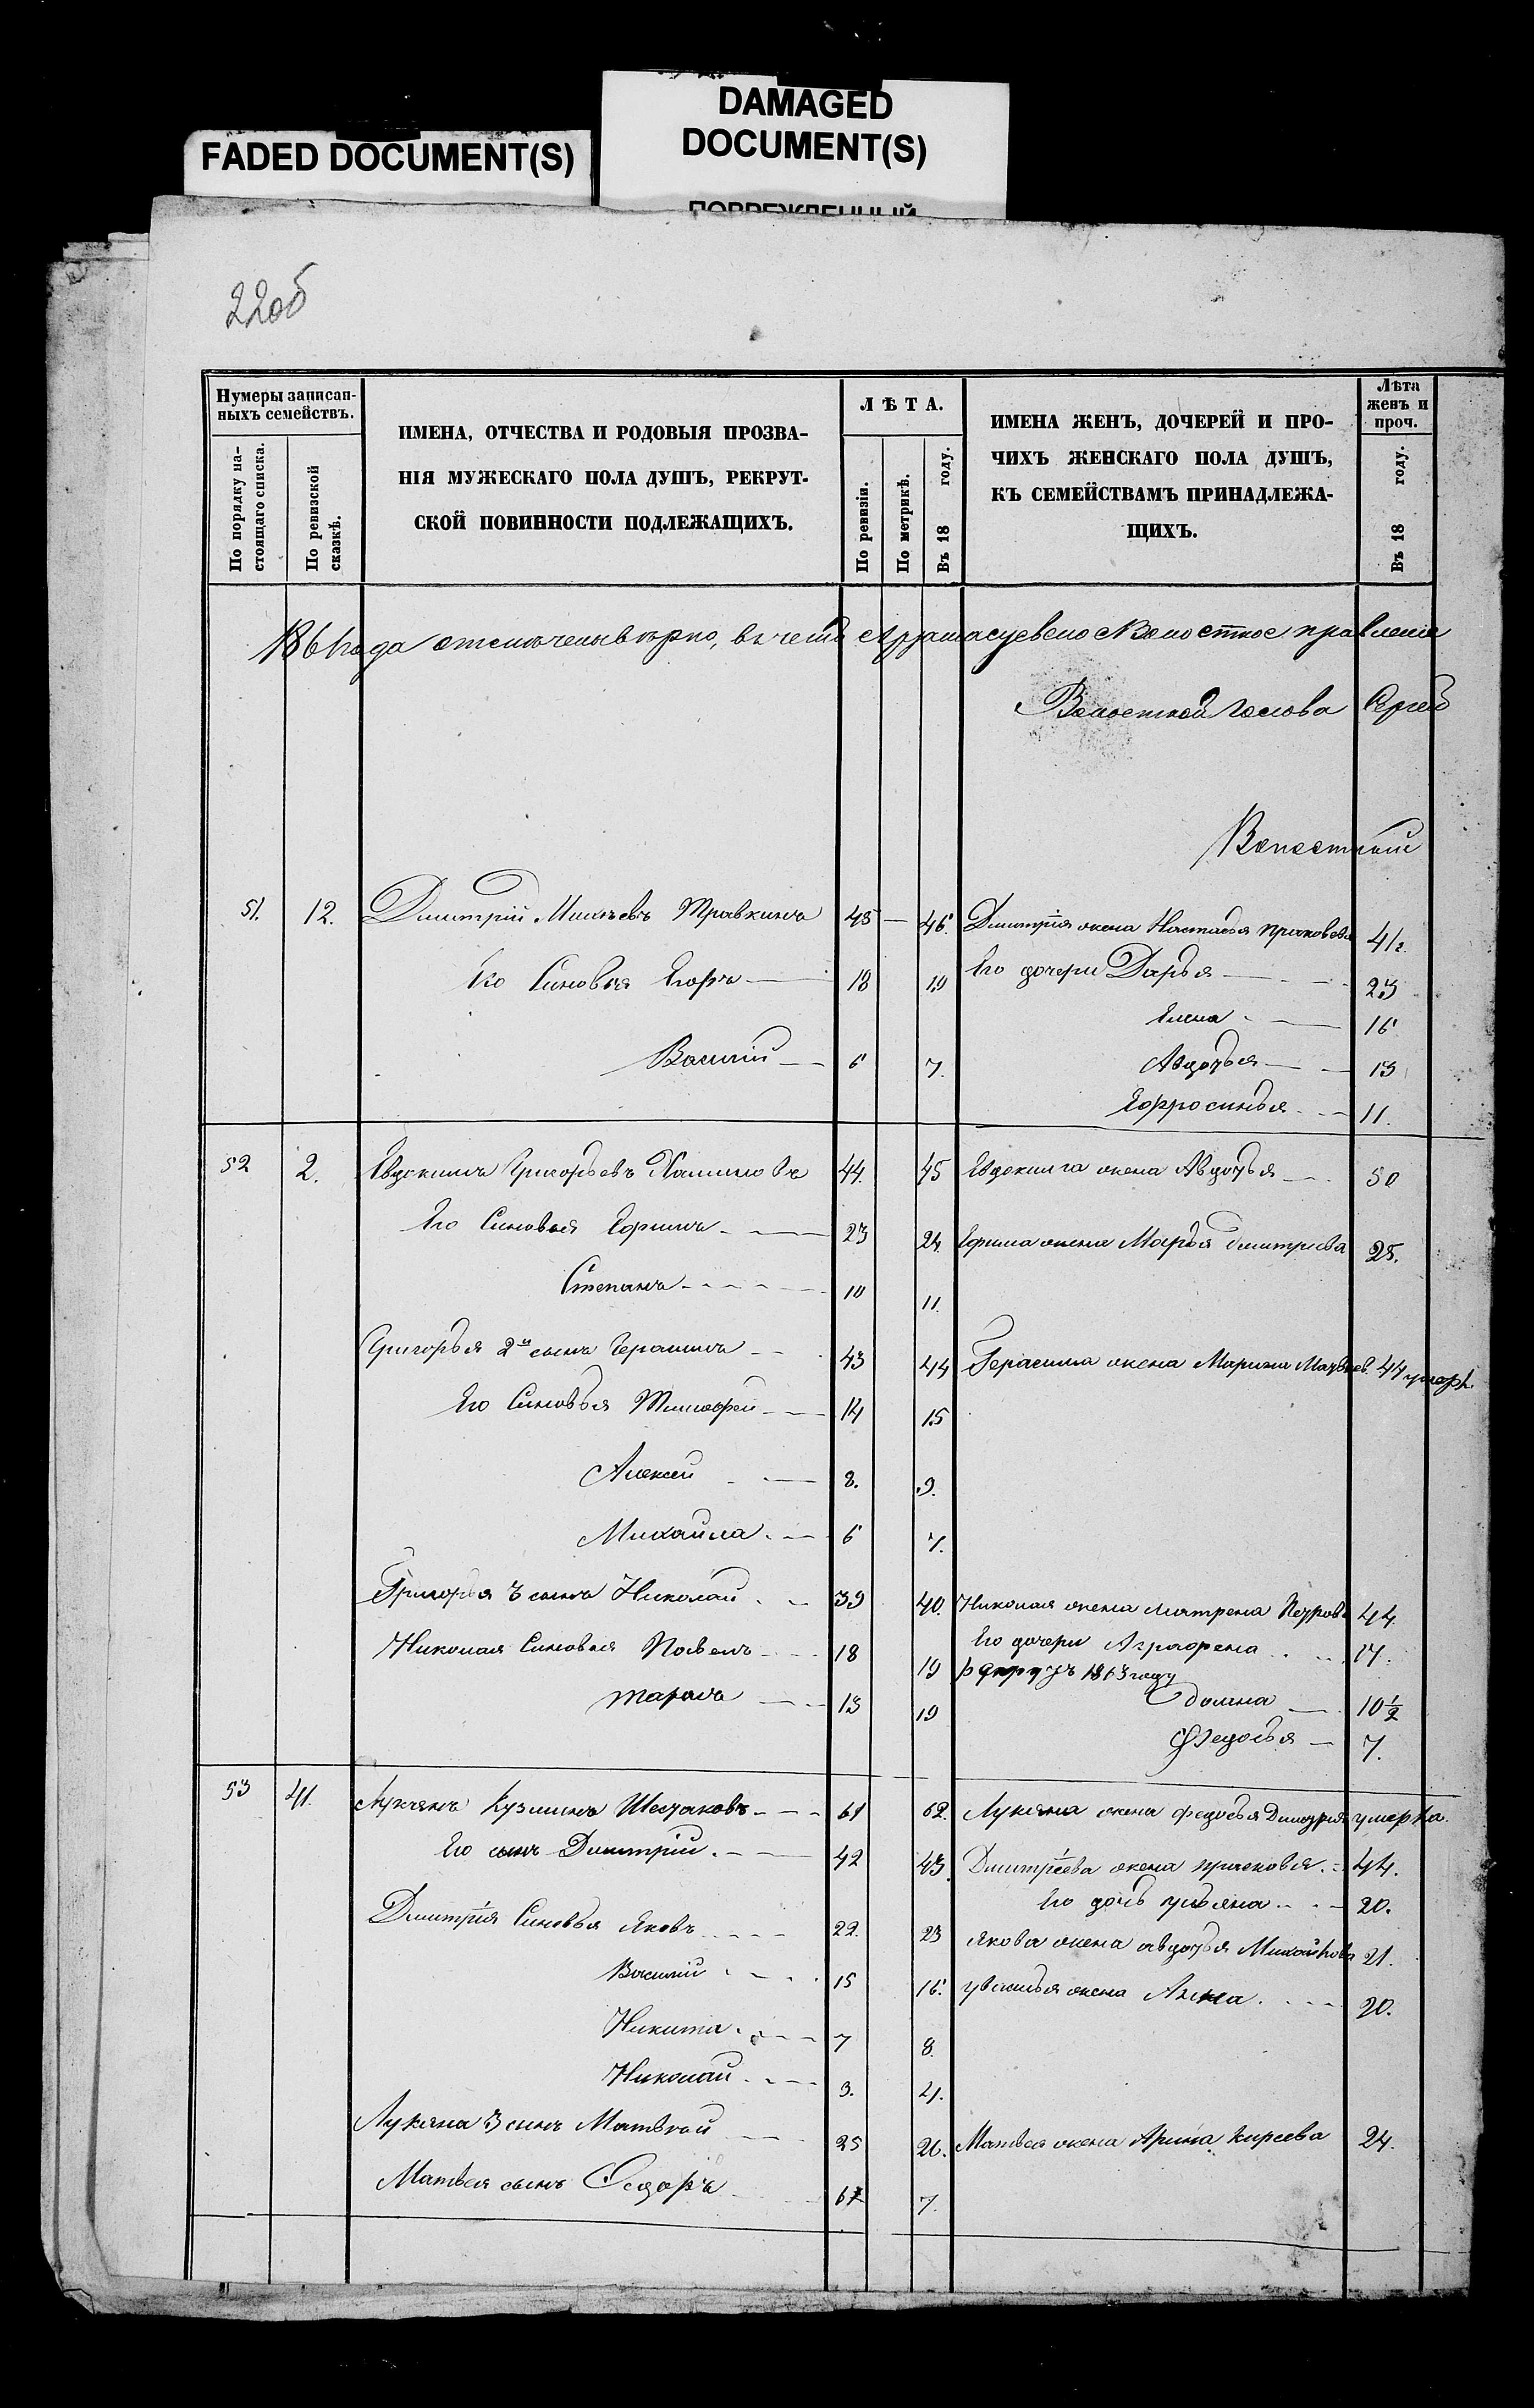 FADED DOCUMENT(S)
DAMAGED
DOCUMENT(S)
ПОВРЕЖДЕННЫЙ
22об
Нумеры записан-
ныхъ семействъ.
По порядку на-
стоящаго списка.
По ревизской
сказкѣ.
ИМЕНА, ОТЧЕСТВА И РОДОВЫЯ ПРОЗВА-
НІЯ МУЖЕСКАГО ПОЛА ДУШЪ, РЕКРУТ-
СКОЙ ПОВИННОСТИ ПОДЛЕЖАЩИХЪ.
ЛѢТА.
По ревизіи.
По метрикѣ.
Въ 18 году.
ИМЕНА ЖЕНЪ, ДОЧЕРЕЙ И ПРО-
ЧИХЪ ЖЕНСКАГО ПОЛА ДУШЪ,
КЪ СЕМЕЙСТВАМЪ ПРИНАДЛЕЖА-
ЩИХЪ.
Лѣта
женъ и
проч.
Въ 18 году.
вѣрно, въ чемъ Волостное правленіе
Волостной Голова Сергей
Волостный
51. 12. Дмитрій Травкинъ 45 — 46. Дмитрія жена Настасья 41/2.
Его Сыновья Егоръ 18 19 Его дочери Дарья 23
Елена 16
Василій 6 7. Авдотья 13
Ефросинья 11.
52 2. Евдокимъ Григорьевъ 44. 45 Евдокима жена Авдотья 50
Его Сыновья Ефимъ 23 24. Ефима жена Марья Дмитріева 25.
Степанъ 10 11.
Григорья 2й сынъ Герасимъ 43 44 Герасима жена Марина 44
Его Сыновья Тимофей 14 15
Алексей 8. 9.
Михайла 6 7.
Григорья 3 сынъ Николай 39 40. Николая жена Матрена Петрова 44.
Николая Сыновья Павелъ 18 19 Его дочери Аграфена 17.
1863 году
Тарасъ 13 19 Домна 10 1/2
Федосья 7.
53 41. Лукьянъ Кузминъ Шестаковъ 61 62. Лукьяна жена Федосья умерла.
Его сынъ Дмитрій 42 43. Дмитріева жена Прасковья 44.
Его дочь Ульяна 20.
Дмитрія Сыновья Яковъ 22. 23 Якова жена Авдотья 21.
Василій 15 16. Василья жена Анна 20.
Никита 7 8.
Николай 3. 4.
Лукьяна 3 сынъ Матвѣй 25 26. Матвея жена Арина Киреева 24.
Матвея сынъ Федоръ 6 7.